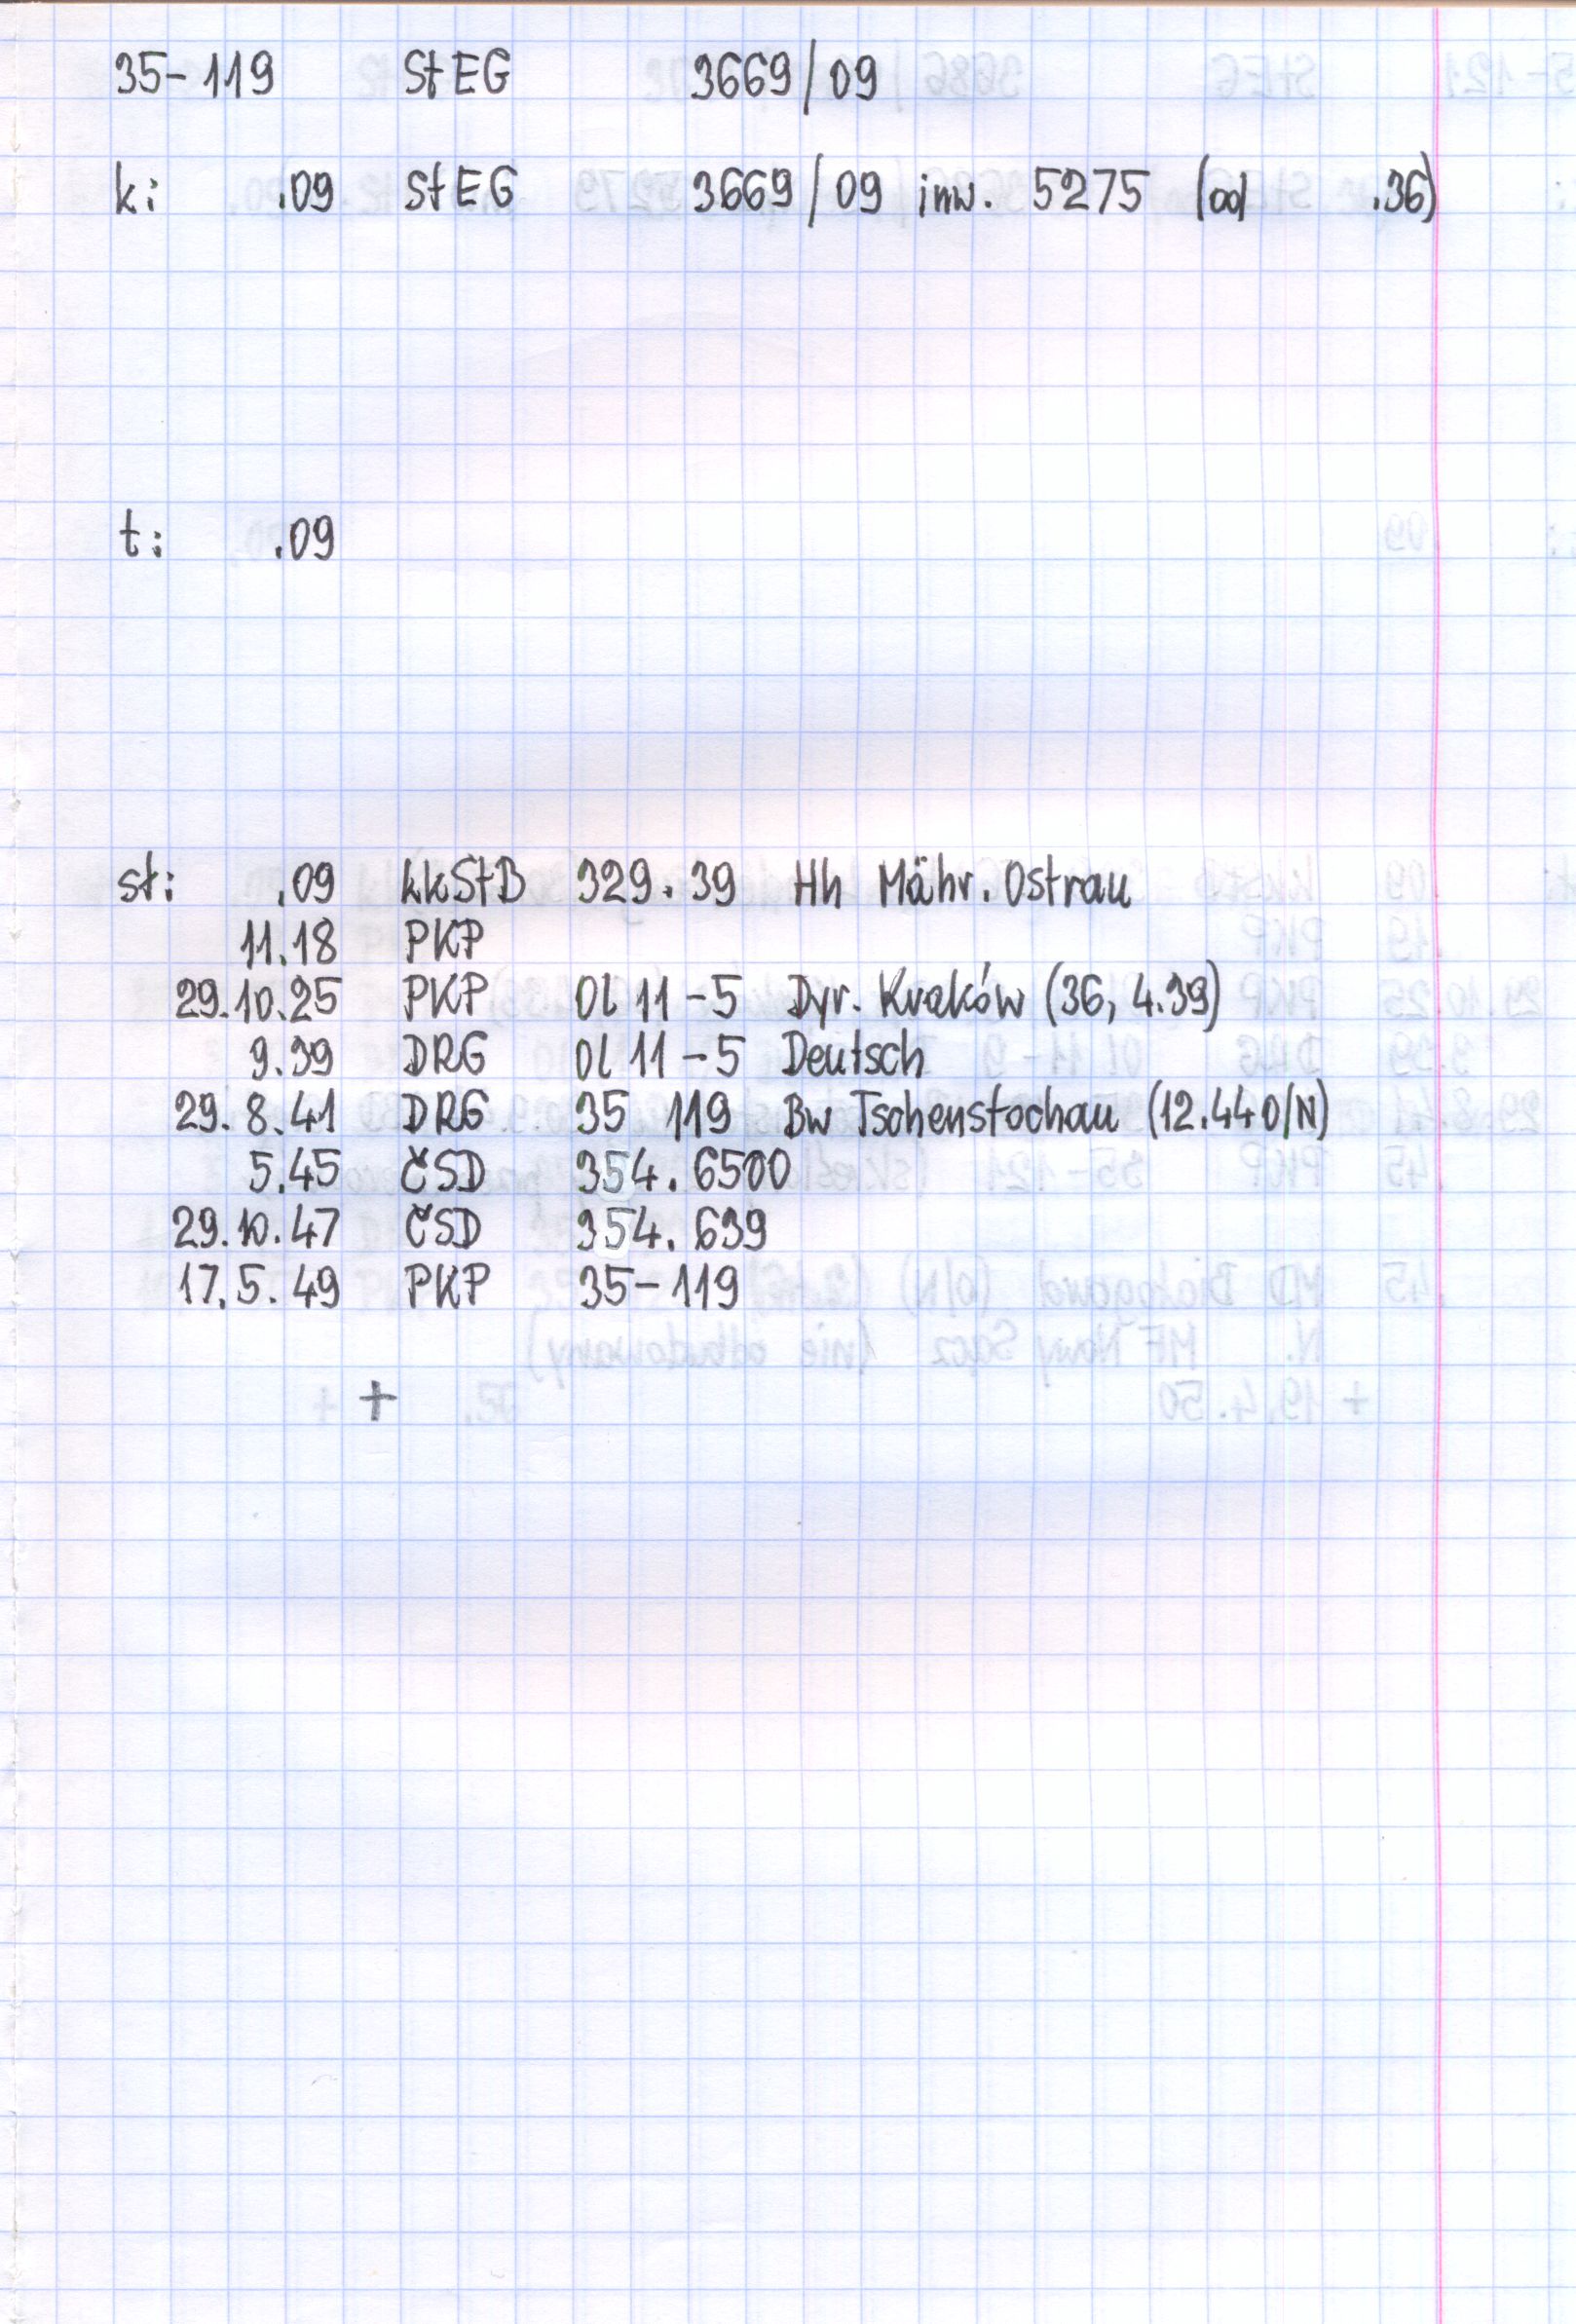 35-119 StEG 3669/09
k: .09 StEG 3669/09 inw. 5275 (od .36)
t: .09
st: .09 kkStB 329.39 Hh Mähr. Ostrau
11.18 PKP
29.10.25 PKP Ol 11-5 Dyr. Kraków (36, 4.39)
9.39 DRG Ol 11-5 Deutsch
29.8.41 DRG 35 119 Bw Tschenstochau (12.44 O/N)
5.45 ČSD 354.6500
29.10.47 ČSD 354.639
17.5.49 PKP 35-119
+